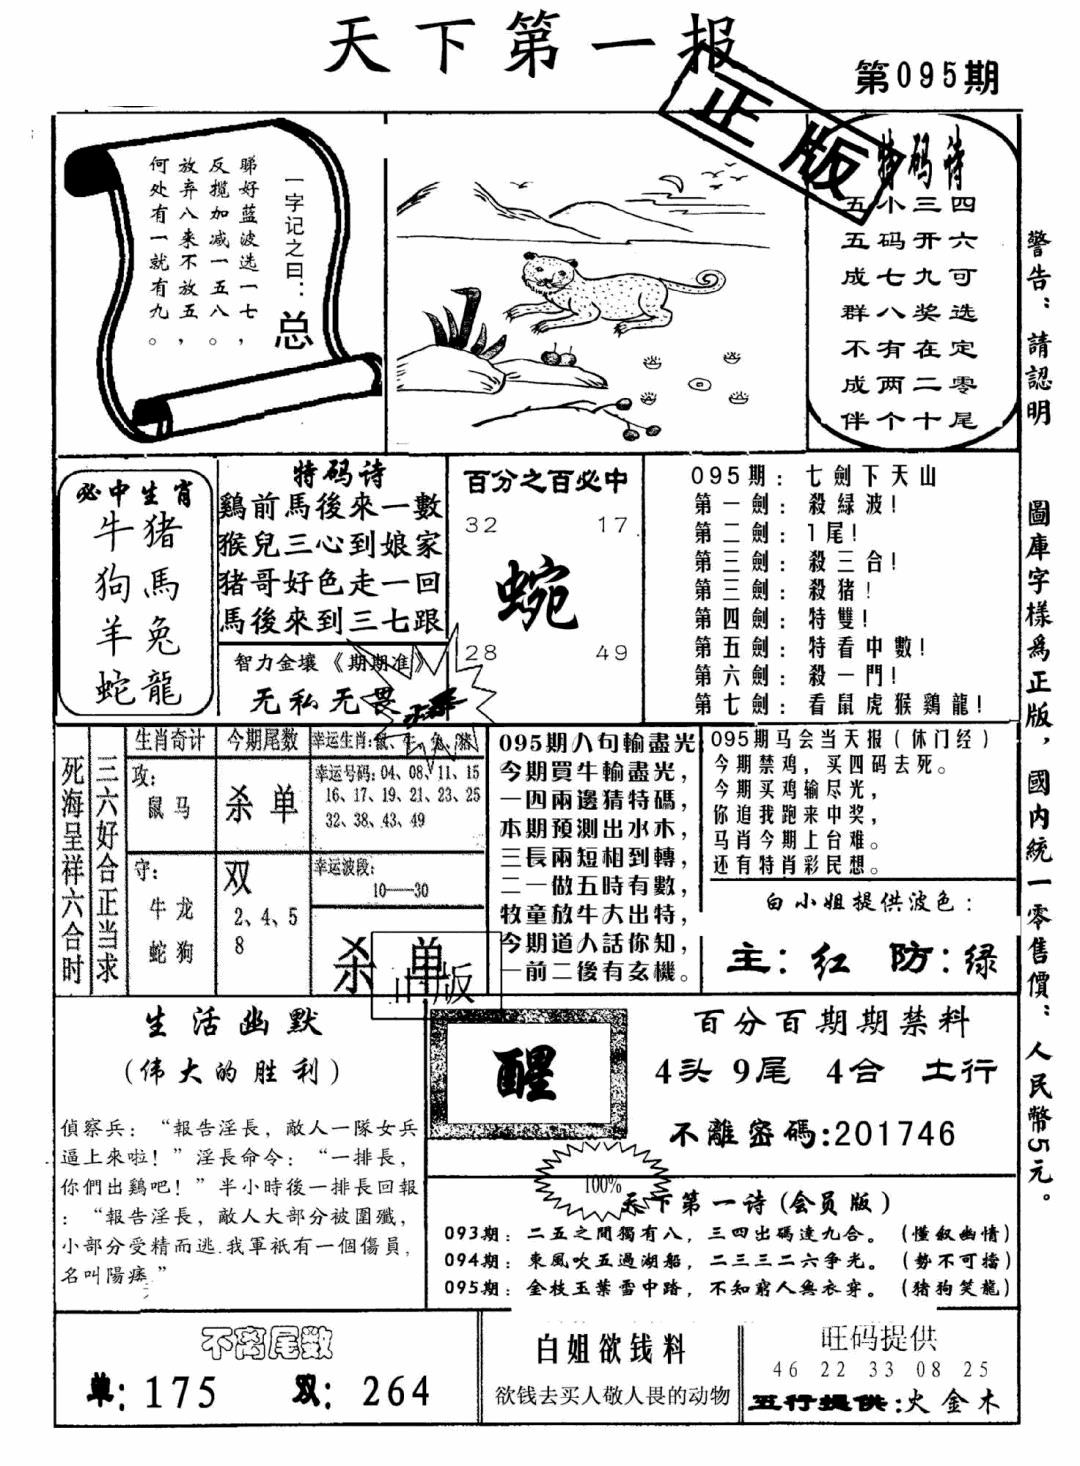 天下第一报
第095期
正版
一字记之曰：总
睇好蓝波选一七，
反揽加减一五八。
放弃八来不放五，
何处有一就有九。
特码诗
五小三四
五码开六
成七九可
群八奖选
不有在定
成两二零
伴个十尾
警告：請認明
圖庫字樣爲正版，國内統一零售價：人民幣5元。
必中生肖
牛猪
狗馬
羊兔
蛇龍
特码诗
鷄前馬後來一數
猴兒三心到娘家
猪哥好色走一回
馬後來到三七跟
智力金壤《期期准》
无私无畏
百分之百必中
32 17
蜿
28 49
095期：七劍下天山
第一劍：殺緑波！
第二劍：1尾！
第三劍：殺三合！
第三劍：殺猪！
第四劍：特雙！
第五劍：特看中數！
第六劍：殺一門！
第七劍：看鼠虎猴鷄龍！
死海呈祥六合时
三六好合正当求
生肖奇计
攻：
鼠马
守：
牛龙
蛇狗
今期尾数
杀单
双
2、4、5
8
幸运生肖：鼠、牛、兔、猪
幸运号码：04、08、11、15
16、17、19、21、23、25
32、38、43、49
幸运波段：
10——30
杀单
正版
095期八句輸盡光
今期買牛輸盡光，
一四兩邊猜特碼，
本期預測出水木，
三長兩短相到轉，
二一做五時有數，
牧童放牛大出特，
今期道人話你知，
一前二後有玄機。
095期马会当天报（休门经）
今期禁鸡，买四码去死。
今期买鸡输尽光，
你追我跑来中奖，
马肖今期上台难。
还有特肖彩民想。
白小姐提供波色：
主：红 防：绿
生活幽默
（伟大的胜利）
偵察兵：“報告淫長，敵人一隊女兵
逼上來啦！”淫長命令：“一排長，
你們出鷄吧！”半小時後一排長回報
：“報告淫長，敵人大部分被圍殲，
小部分受精而逃.我軍衹有一個傷員，
名叫陽痿.”
醒
百分百期期禁料
4头 9尾 4合 土行
不離密碼：201746
100%
天下第一诗（会员版）
093期：二五之間獨有八，三四出碼逢九合。（懂叙幽情）
094期：東風吹五過湖船，二三三二六争光。（勢不可擋）
095期：金枝玉葉雪中踏，不知窮人無衣穿。（猪狗笑龍）
不离尾数
单：175 双：264
白姐欲钱料
欲钱去买人敬人畏的动物
旺码提供
46 22 33 08 25
五行提供：火金木